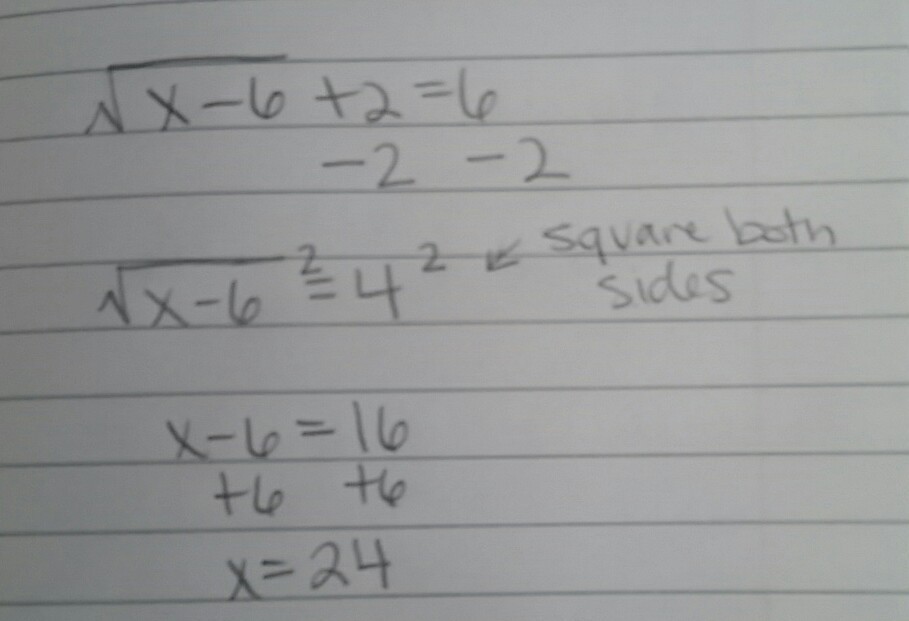 √x-6 +2=6
-2 -2
√x-6² = 4² ↙ square both
sides
x-6=16
+6 +6
x=24